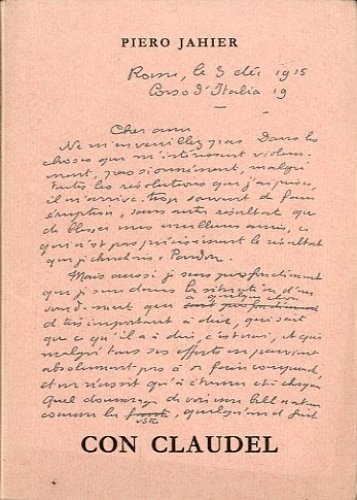 PIERO JAHIER
Rome, le 3 déc 1915
Corso d'Italia 19
Cher ami
Ne m'en veuillez pas Dans les
choses qui m'intéressent violem-
ment, passionnément, malgré
toutes les résolutions que j'ai prises,
il m'arrive trop souvent de faire
éruption, sans autre résultat que
de blesser mes meilleurs amis, ce
qui n'est pas précisément le résultat
que je cherchais. Pardon.
Mais aussi je sens profondément
que je suis dans la situation d'un
sourd-muet qui a quelque chose
de très important à dire, qui sait
que ce qu'il a à dire, c'est vrai, et qui
malgré tous ses efforts ne parvient
absolument pas à se faire comprendre,
et ne réussit qu'à étonner et à choquer
Quel dommage de voir une belle nature
comme la vôtre, quelqu'un d'
CON CLAUDEL